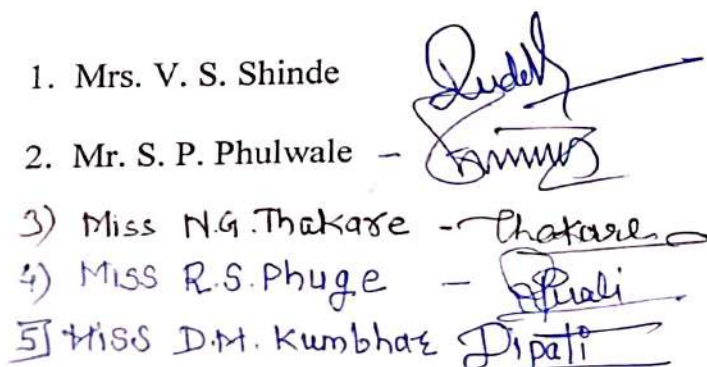 1. Mrs. V. S. Shinde
2. Mr. S. P. Phulwale -
3) Miss N.G. Thakare - Thakare
4) Miss R.S. Phuge -
5] Miss D.M. Kumbhar Dipati